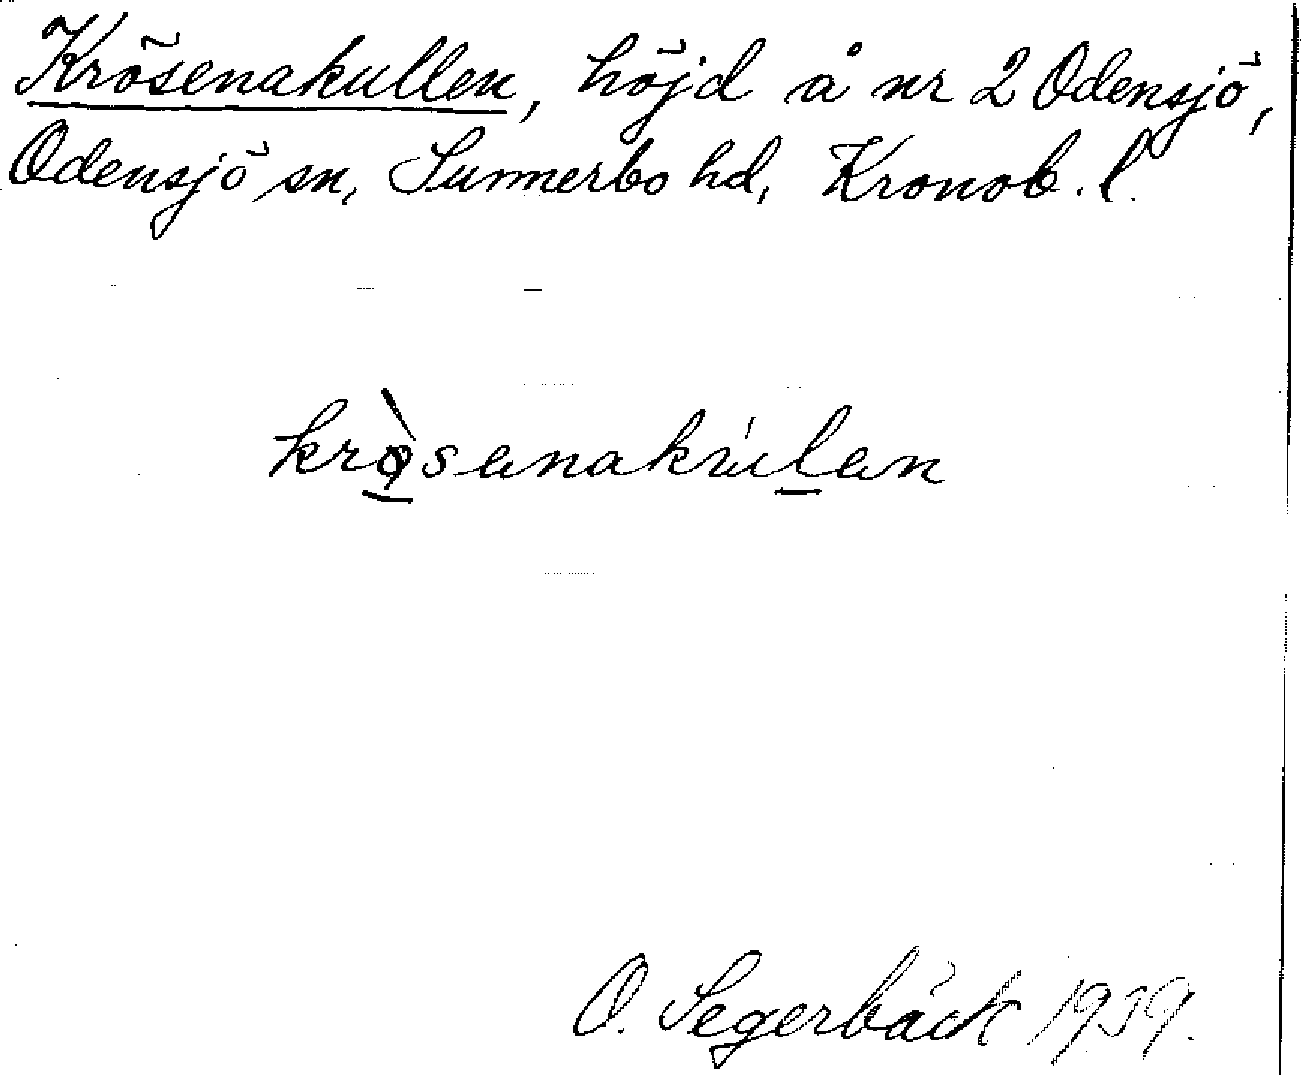 Krösenakullen, höjd å nr 2 Odensjö,
Odensjö sn, Sunnerbo hd, Kronob. l.
krø̀sanakúlan
O. Segerbäck 1939.